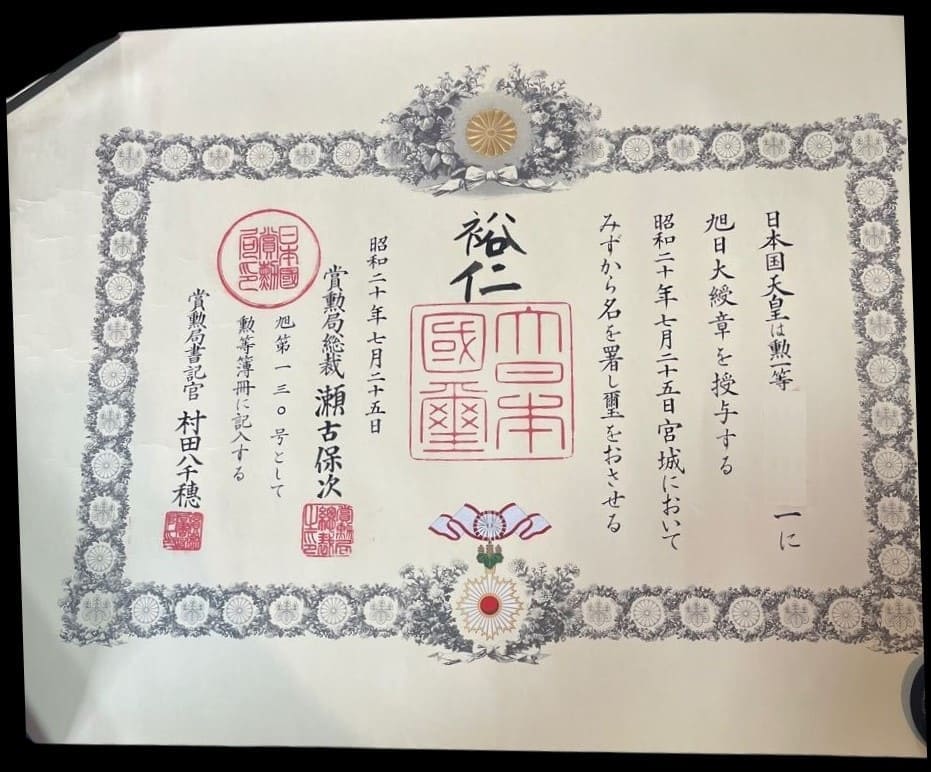 日本国天皇は勲一等
一に
旭日大綬章を授与する
昭和二十年七月二十五日宮城において
みずから名を署し璽をおさせる
裕仁
大日本國璽
昭和二十年七月二十五日
賞勲局総裁 瀬古保次
旭第一三〇号として
勲等簿冊に記入する
日本國賞勲局印
賞勲局書記官 村田八千穂
賞勲局総裁之印